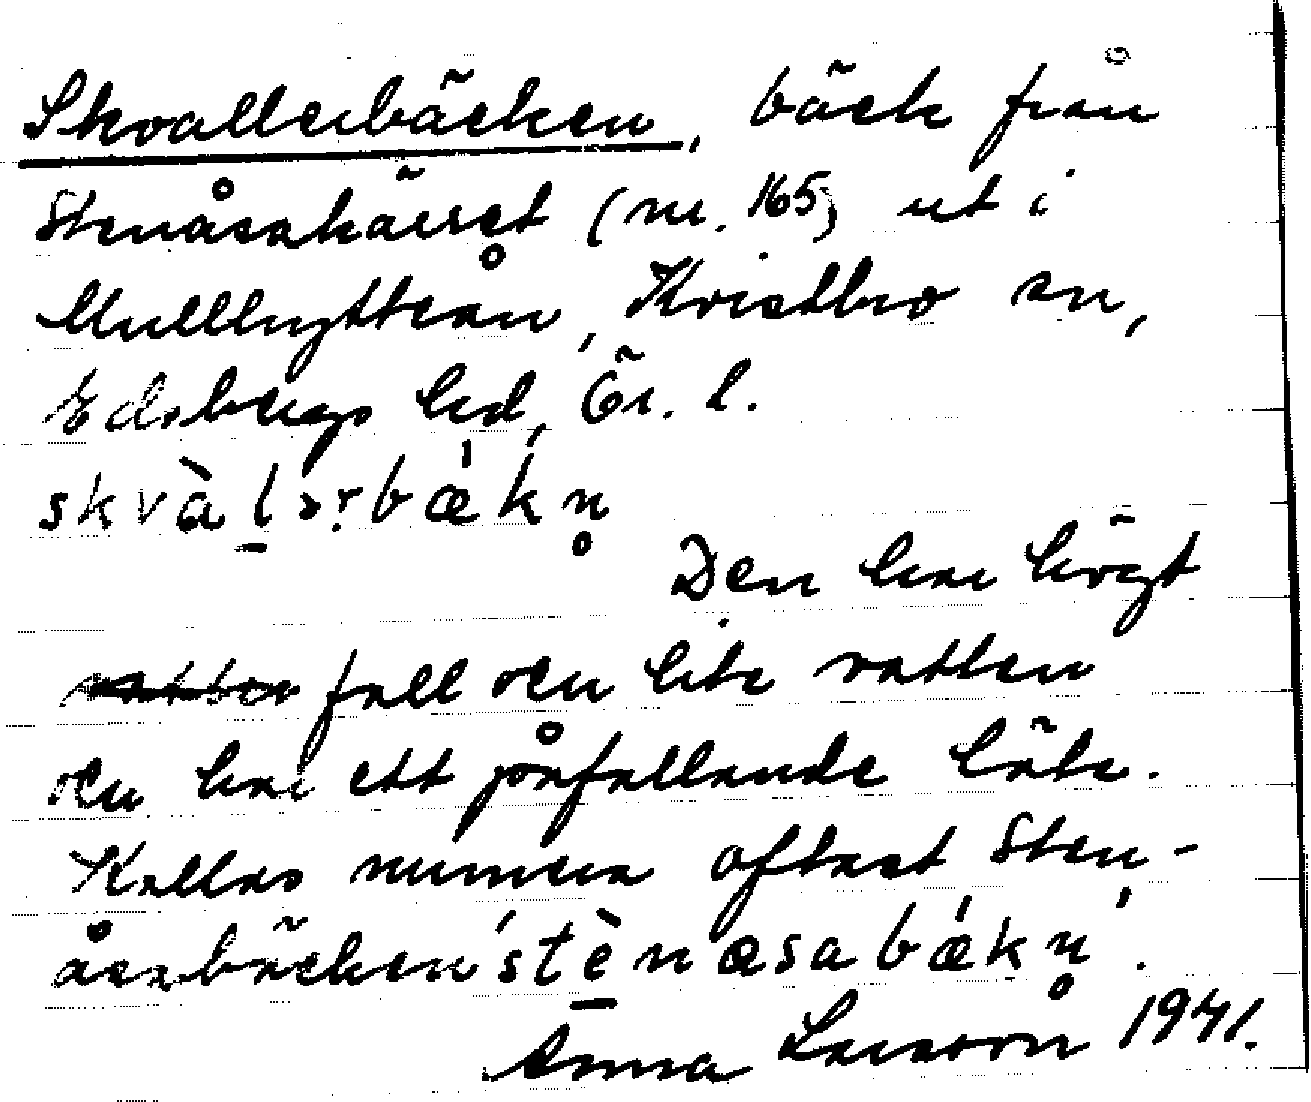 Skvallerbäcken, bäck från
Stenåsakärret (nr. 165) ut i
Mullhytteån, Kvistbro sn,
Edsbergs hd, Ör. l.
skvàlərbǽkn̥
Den har högt
vatten fall och lite vatten
och har ett påfallande läte.
Kallas numera oftast Sten-
åsabäcken 'stènæsabǽkn̥'.
Anna Larsson 1941.